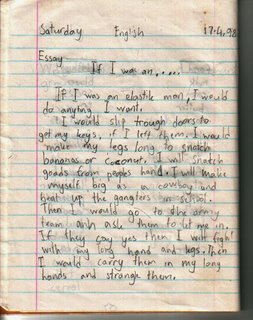 Saturday English 17.4.98
Essay
If I was an.....
If I was an elastik man, I would
do anyting I want.
I would slip trough doors to
get my keys, if I left them. I would
make my legs long to snatch
bananas or coconut. I will snatch
goods from peoples hand. I will make
myself big as a cowboy and
beat up the gangsters in school.
Then I would go to the army
team anh ask them to let me in.
If they say yes then I will fight
with my lord hand and legs. Then
I would carry them in my long
hands and strangle them.